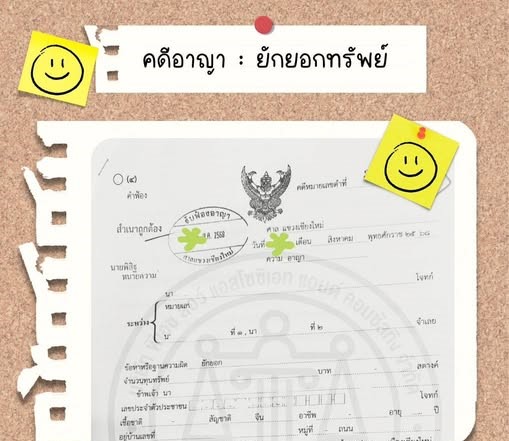 คดีอาญา : ยักยอกทรัพย์
(๔)
คำฟ้อง
คดีหมายเลขดำที่
สำเนาถูกต้อง
รับฟ้องอาญา
ค. 2568
ศาลแขวงเชียงใหม่
ศาล แขวงเชียงใหม่
วันที่ เดือน สิงหาคม พุทธศักราช ๒๕ ๖๘
ความ อาญา
นายพิสิฐ
ทนายความ
นา โจทก์
หมายเลข
ระหว่าง
น ที่ ๑ , นา ที่ ๒ จำเลย
ข้อหาหรือฐานความผิด ยักยอก
จำนวนทุนทรัพย์ บาท สตางค์
ข้าพเจ้า นา โจทก์
เลขประจำตัวประชาชน
เชื้อชาติ สัญชาติ จีน อาชีพ อายุ ปี
อยู่บ้านเลขที่ หมู่ที่ ถนน